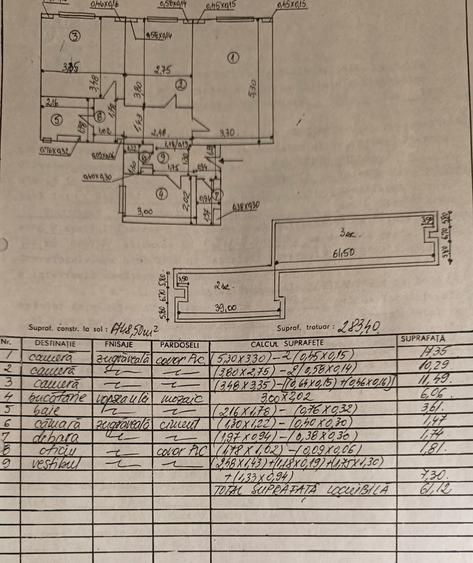 0,46X0,16
0,58X0,14
0,45X0,15
0,45X0,15
0,58X0,14
3
1
2
3,35
3,48
3,80
2,75
5,30
2,16
1,78
5
8
1,02
1,43
2,48
3,30
0,76X0,32
1,18/0,19
9
1,75
1,30
0,94
0,40X0,30
4
3,00
2,02
7
1,97
0,38X0,30
3 sc.
61,50
3,50
5,80 6,70 5,80
2 sc.
3,50
39,00
5,80 6,70 5,80
Supraf. constr. la sol : 1748,50m² Supraf. trotuar : 283,40
Nr. DESTINAȚIE FINISAJE PARDOSELI CALCUL SUPRAFEȚE SUPRAFAȚĂ
1 camera zugraveală covor PVC (5,30X3,30) - 2(0,45X0,15) 17,35
2 camera (3,80X2,75) - 2(0,58X0,14) 10,29
3 camera (3,48X3,35) - [(0,44X0,15)+(0,46X0,16)] 11,49
4 bucătărie vopsitorie mozaic 3,00X2,02 6,06
5 baie (2,16X1,78) - (0,76X0,32) 3,61
6 cămara zugraveală ciment (1,30X1,22) - (0,40X0,30) 1,47
7 debara (1,97X0,94) - (0,38X0,30) 1,74
8 oficiu covor PVC (1,78X1,02) - (0,09X0,06) 1,81
9 vestibul (2,48X1,43)+(1,18X0,19)+(1,75X1,30)
+(1,33X0,94) 7,30
TOTAL SUPRAFAȚĂ LOCUIBILĂ 61,12